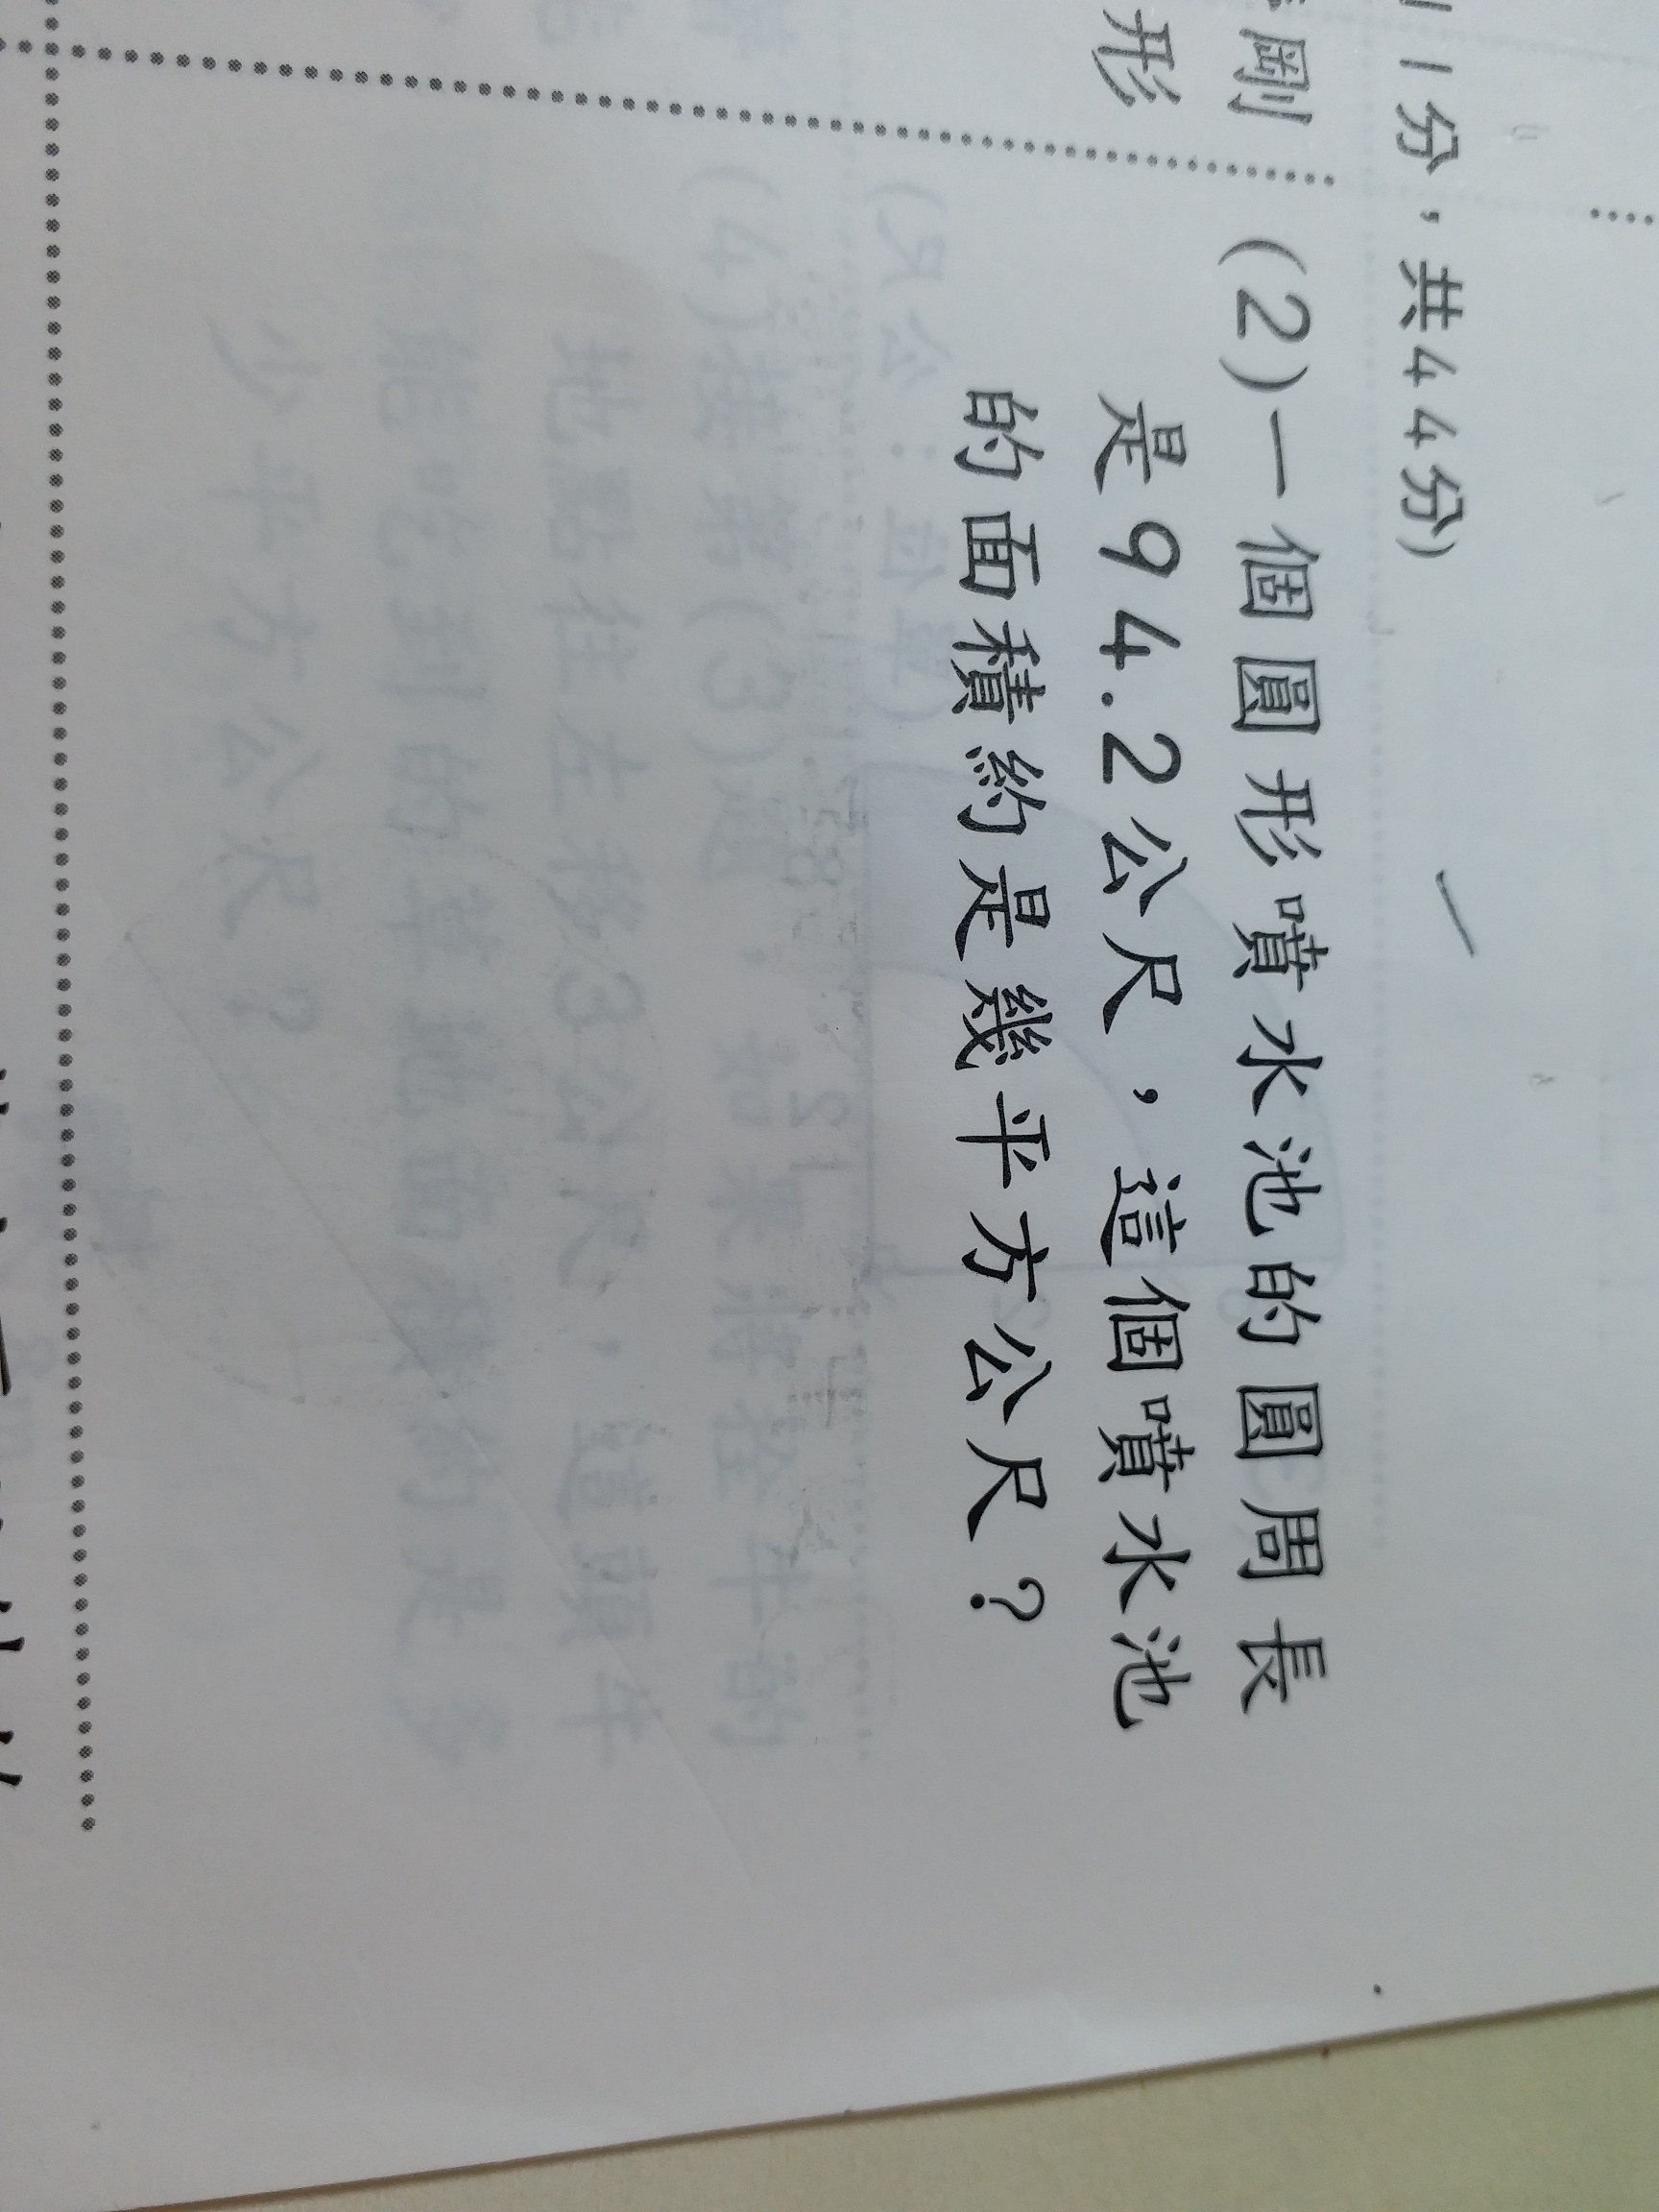 11分，共44分)
剛
形
(2)一個圓形噴水池的圓周長
是94.2公尺，這個噴水池
的面積約是幾平方公尺？